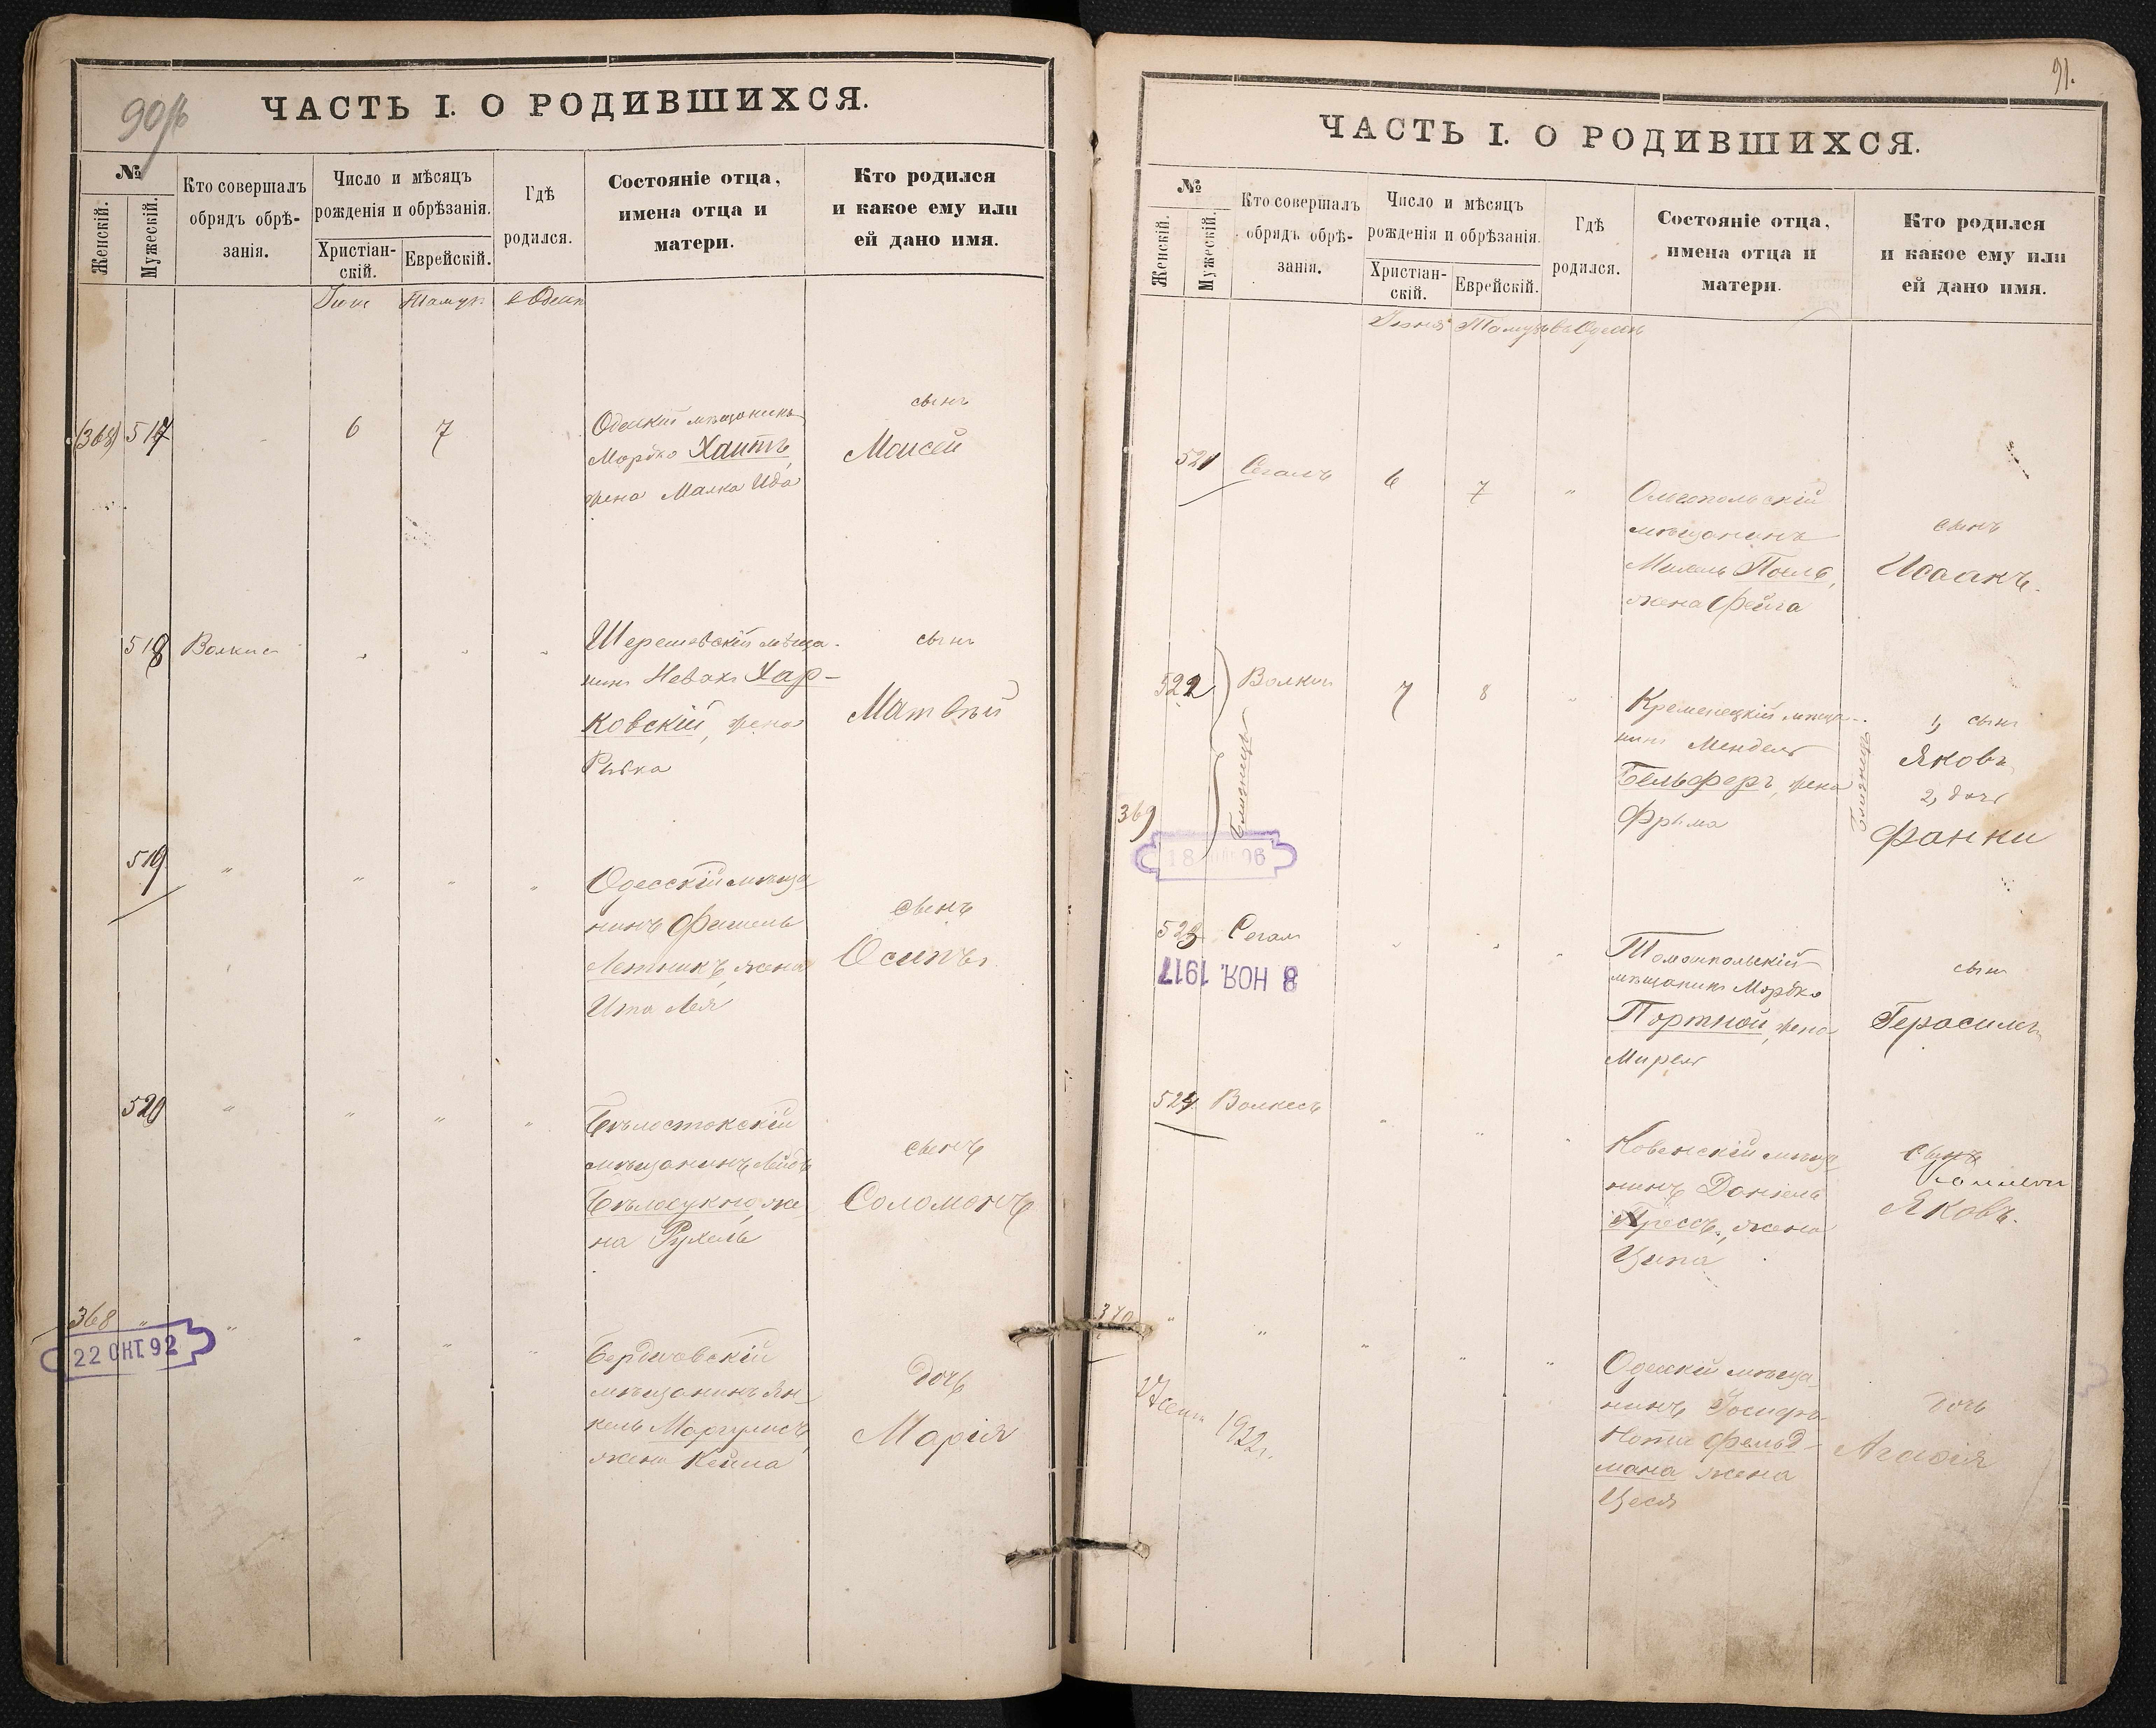 90/б
ЧАСТЬ I. О РОДИВШИХСЯ.
№
Женскій.
Мужескій.
Кто совершалъ
обрядъ обрѣ-
занія.
Число и мѣсяцъ
рожденія и обрѣзанія.
Христіан-
скій.
Еврейскій.
Гдѣ
родился.
Состояніе отца,
имена отца и
матери.
Кто родился
и какое ему или
ей дано имя.
(368) 517
6 7
Одесскій мѣщанинъ
Мордко Хаитъ,
жена Малка Ида
сынъ
Моисей
518
Шерешевскій мѣща-
нинъ Хар-
ковскій, жена
Рывка
сынъ
Матвѣй
519 "
" " "
Одесскій мѣща
нинъ Фишель
Летникъ, жена
Ита Лея
сынъ
Осипъ
520 "
" " "
Бѣлостокскій
мѣщанинъ Лейбъ
Бѣлосукно, же
на Рухель
сынъ
Соломонъ
368 " "
22 ОКТ. 92
" " "
Бердичовскій
мѣщанинъ Ян
кель Маргулисъ,
жена Кейла
дочь
Марія
91.
ЧАСТЬ I. О РОДИВШИХСЯ.
№
Женскій.
Мужескій.
Кто совершалъ
обрядъ обрѣ-
занія.
Число и мѣсяцъ
рожденія и обрѣзанія.
Христіан-
скій.
Еврейскій.
Гдѣ
родился.
Состояніе отца,
имена отца и
матери.
Кто родился
и какое ему или
ей дано имя.
Іюня Тамузъ въ Одессѣ
521 Сегалъ
6 7 "
Ольгопольскій
мѣщанинъ
жена Фейга
сынъ
Исаакъ.
522
7 8 "
Близнецы
369
Кременецкій мѣща-
нинъ Мендель
Бельферъ, жена
Фрыма
Близнецы
1, сынъ
Яковъ,
2, дочь
Фанни
523 Сегалъ
8 НОЯ. 1917
" " "
Томашпольскій
мѣщанинъ Мордко
Портной, жена
Мирель
сынъ
Герасимъ
524 Волкесъ
" " "
Ковенскій мѣща
нинъ Даніель
жена
Ципа
сынъ
Яковъ.
370 " "
" " "
1922г.
Одесскій мѣща-
нинъ
Фельд-
мана жена
Цеся
дочь
Агафія